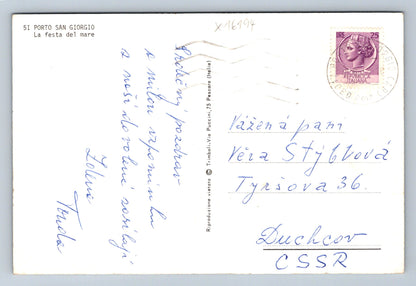 51 PORTO SAN GIORGIO
La festa del mare
X16194
Srdečný pozdrav
a milou vzpomínku
z naší dovolené zasílají
Zdena
Tonda
Riproduzione vietata
© Fimboli - Via Puccini, 75 Pesaro (Italia)
25
POSTE
ITALIANE
Vážená paní
Věra Stýblová
Tyršova 36.
Duchcov
CSSR